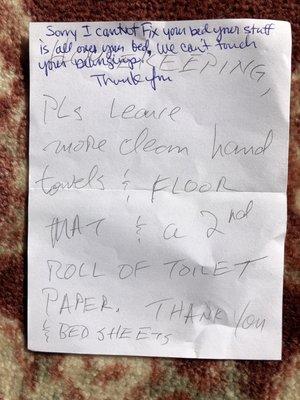 Sorry I cannot fix your bed your stuff
is all over your bed, We can't touch
your belongings.
Thank you
HOUSEKEEPING,
PLs Leave
more clean hand
towels & FLOOR
MAT & a 2nd
ROLL OF TOILET
PAPER. THANK YOU
& BED SHEETS